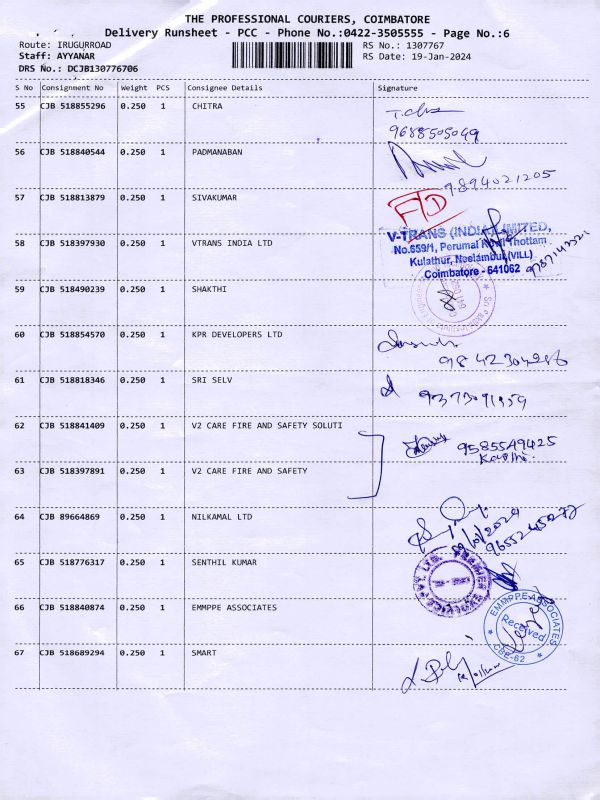 THE PROFESSIONAL COURIERS, COIMBATORE
Delivery Runsheet - PCC - Phone No.:0422-3505555 - Page No.:6
Route: IRUGURROAD RS No.: 1307767
Staff: AYYANAR RS Date: 19-Jan-2024
DRS No.: DCJB130776706
S No Consignment No Weight PCS Consignee Details Signature
55 CJB 518855296 0.250 1 CHITRA
9688505049
56 CJB 518840544 0.250 1 PADMANABAN
9894021205
57 CJB 518813879 0.250 1 SIVAKUMAR
F/D
V-TRANS (INDIA) LIMITED,
58 CJB 518397930 0.250 1 VTRANS INDIA LTD No.659/1, Perumal Kovil Thottam
Kulathur, Neelambur (VILL)
Coimbatore - 641062
59 CJB 518490239 0.250 1 SHAKTHI
60 CJB 518854570 0.250 1 KPR DEVELOPERS LTD
9842304286
61 CJB 518818346 0.250 1 SRI SELV
9373091959
62 CJB 518841409 0.250 1 V2 CARE FIRE AND SAFETY SOLUTI
9585549425
63 CJB 518397891 0.250 1 V2 CARE FIRE AND SAFETY
64 CJB 89664869 0.250 1 NILKAMAL LTD
65 CJB 518776317 0.250 1 SENTHIL KUMAR
66 CJB 518840874 0.250 1 EMMPPE ASSOCIATES
EMMPPE ASSOCIATES
Received
CBE-62
67 CJB 518689294 0.250 1 SMART